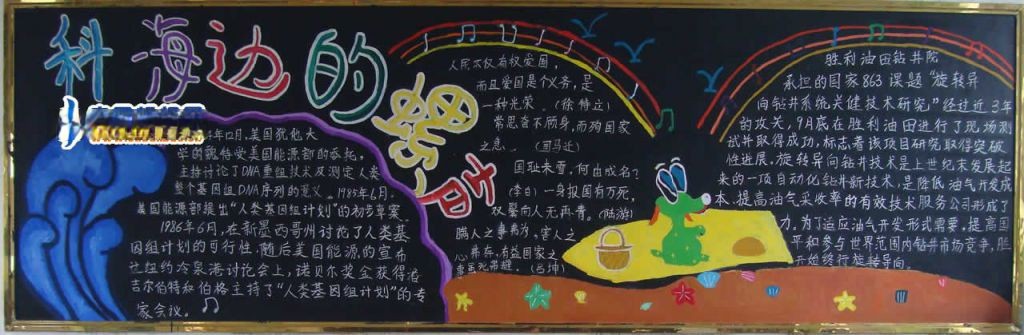 科海边的
声
年12月,美国犹他大
学的魏特受美国能源部的委托,
主持讨论了DNA重组技术及测定人类
整个基因组DNA序列的意义。1985年6月,
美国能源部提出“人类基因组计划”的初步草案。
1986年6月,在新墨西哥州讨论了人类基
因组计划的可行性。随后美国能源的宣布
纽约冷泉港讨论会上,诺贝尔奖金获得者
吉尔伯特和伯格主持了“人类基因组计划”的专
家会议。
人民不仅有权爱国,
而且爱国是个义务,是
一种光荣。(徐特立)
常思奋不顾身,而殉国家
之急。(司马迁)
国耻未雪,何由成名?
(李白)一身报国有万死,
双鬓向人无再青。(陆游)
瞒人之事弗为,害人之
心弗存,有益国家之
事虽死弗避。(吕坤)
胜利油田钻井院
承担的国家863课题“旋转导
向钻井系统关健技术研究”经过近3年
的攻关,9月底在胜利油田进行了现场测
试并取得成功,标志着该项目研究取得突破
性进展。旋转导向钻井技术是上世纪末发展起
来的一项自动化钻井新技术,是降低油气开发成
本、提高油气采收率的有效技术服务公司形成了
力。为了适应油气开发形式需要,提高国
平和参与世界范围内钻井市场竞争,胜
开始终行旋转导向。